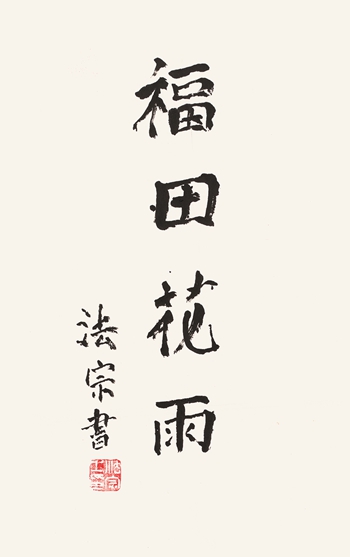 福田花雨
法宗書